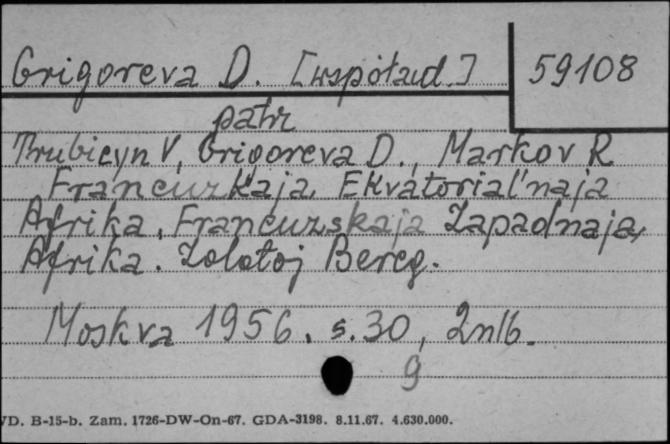 Grigoreva D. [współaud.] 59108
patr
Trubicyn V, Grigoreva D., Markov R
Francuzskaja Ekvatorial'naja
Afrika. Francuzskaja Zapadnaja
Afrika. Zolotoj Bereg.
Moskva 1956. s. 30, 2nlb.
9
VD. B-15-b. Zam. 1726-DW-On-67. GDA-3198. 8.11.67. 4.630.000.